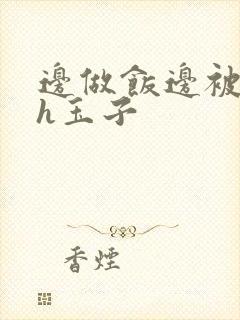 邊做飯邊被
h玉子
香煙